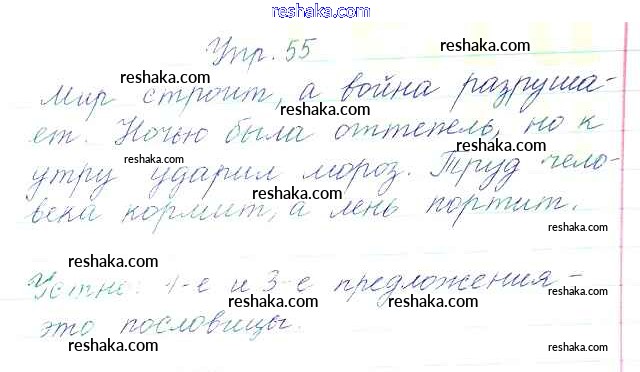 reshaka.com
Упр. 55
reshaka.com
reshaka.com
reshaka.com
Мир строит, а война разруша-
reshaka.com
reshaka.com
ет. Ночью была оттепель, но к
reshaka.com
reshaka.com
утру ударил мороз. Труд чело-
reshaka.com
reshaka.com
века кормит, а лень портит.
reshaka.com
reshaka.com
Устно: 1-е и 3-е предложения -
reshaka.com
reshaka.com
reshaka.com
это пословицы.
reshaka.com
reshaka.com